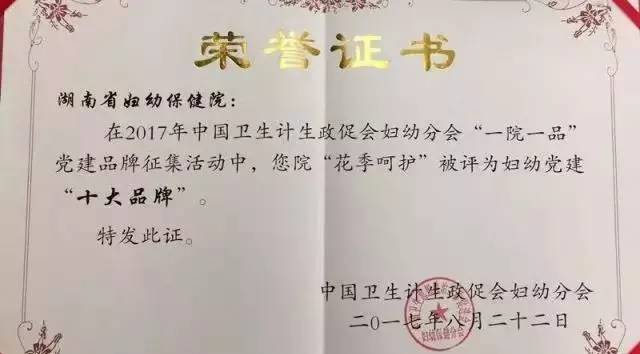 荣誉证书
湖南省妇幼保健院：
在2017年中国卫生计生政促会妇幼分会“一院一品”
党建品牌征集活动中，您院“花季呵护”被评为妇幼党建
“十大品牌”。
特发此证。
中国卫生计生政促会妇幼分会
二〇一七年八月二十二日
妇幼保健分会